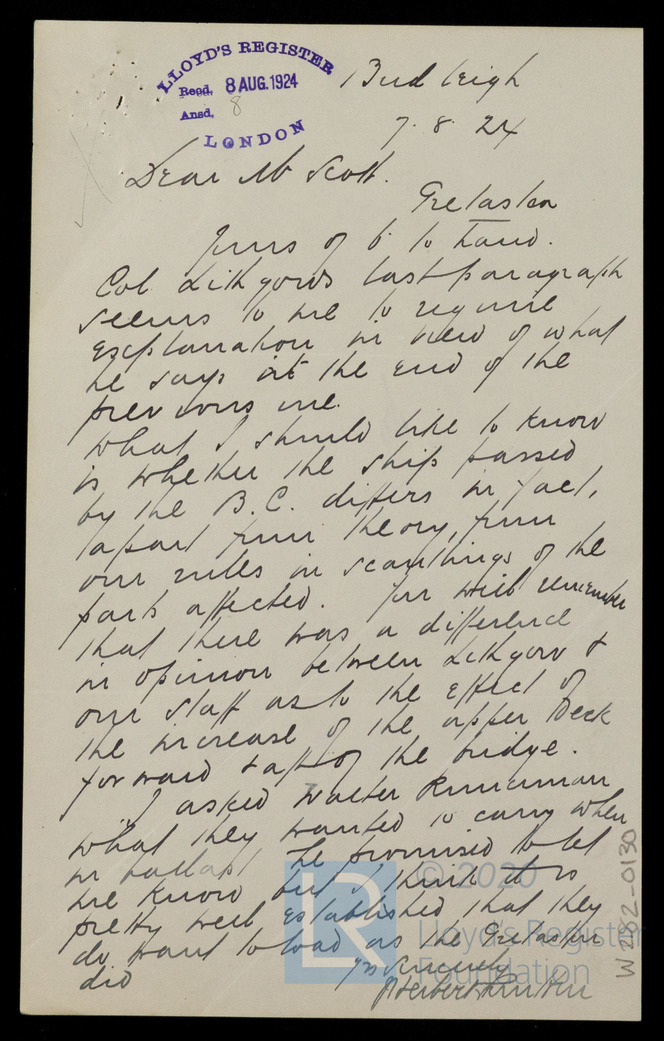 LLOYD'S REGISTER
Recd. 8 AUG. 1924
Ansd. 8
LONDON
Budleigh
7. 8. 24
Dear Mr Scott.
Gretaston
Yours of 6 to hand.
Col Lithgows last paragraph
seems to me to require
explanation in view of what
he says at the end of the
previous one.
What I should like to know
is whether the ship passed
by the B.C. differs in fact,
apart from theory, from
our rules in scantlings of the
parts affected. You will remember
that there was a difference
in opinion between Lithgow &
our staff as to the effect of
the increase of the upper Deck
forward & aft of the bridge.
I asked Walter Runciman
what they wanted to carry when
in ballast he promised to let
me know but I think it is
pretty well established that they
do want to load as the Gretaston
did
yrs sincerely
Herbert
W282-0130
© 2020
LR
Lloyd's Register
Foundation